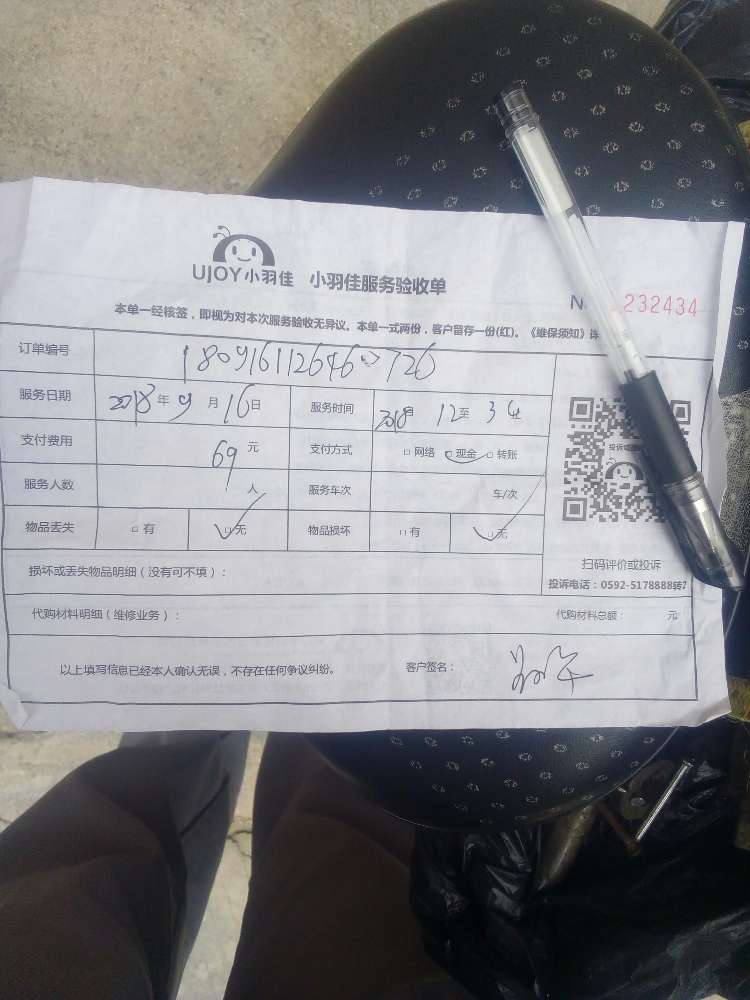 UJOY小羽佳 小羽佳服务验收单
N 232434
本单一经核签，即视为对本次服务验收无异议。本单一式两份，客户留存一份(红)。《维保须知》详
订单编号
服务日期 2018年9月16日 服务时间 12至3
支付费用 69元 支付方式 □网络 □现金 □转账
服务人数 人 服务车次 车/次
物品丢失 □有 □无 物品损坏 □有 □无
投诉
扫码评价或投诉
损坏或丢失物品明细（没有可不填）：
投诉电话：0592-5178888转7
代购材料明细（维修业务）： 代购材料总额： 元
以上填写信息已经本人确认无误，不存在任何争议纠纷。 客户签名：